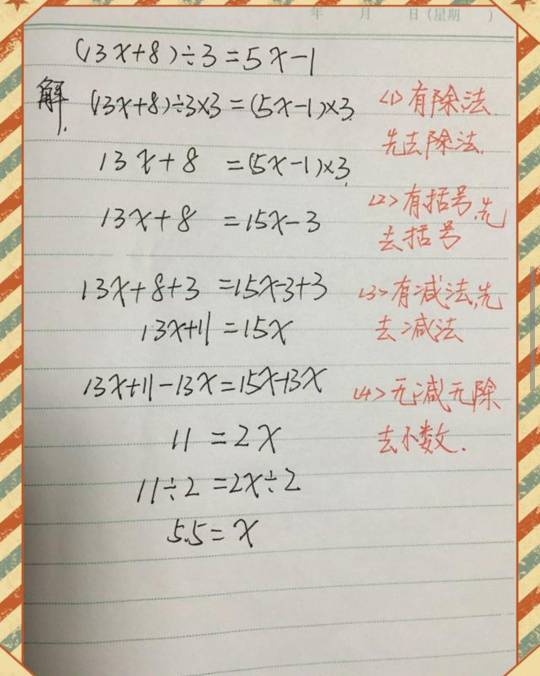 年 月 日(星期 )
(13x+8)÷3=5x-1
解. (13x+8)÷3×3=(5x-1)×3 <1>有除法
先去除法
13x+8 =(5x-1)×3
13x+8 =15x-3 <2>有括号,先
去括号
13x+8+3 =15x-3+3 <3>有减法,先
去减法
13x+11=15x
13x+11-13x=15x-13x <4>无减无除
去小数.
11=2x
11÷2=2x÷2
5.5=x